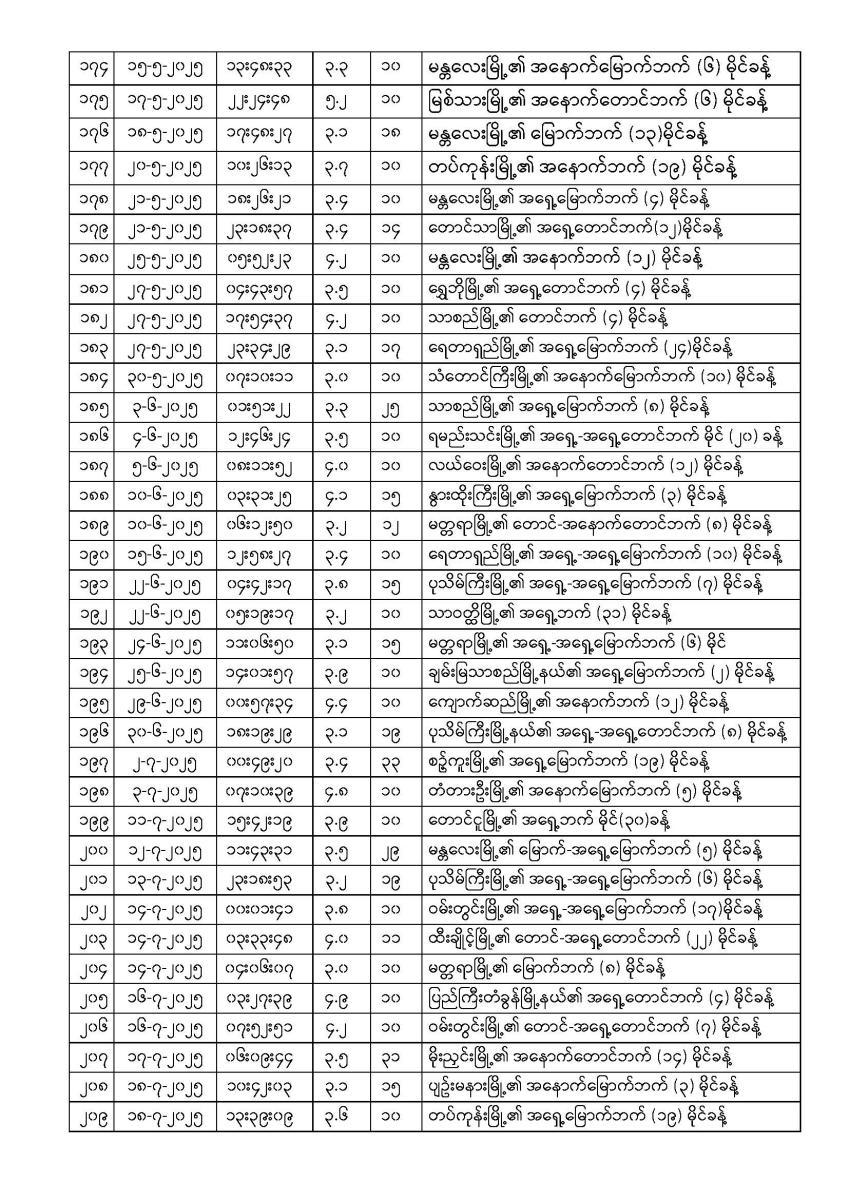 ၁၇၄ ၁၅-၅-၂၀၂၅ ၁၃း၄၈း၃၃ ၃.၃ ၁၀ မန္တလေးမြို့၏ အနောက်မြောက်ဘက် (၆) မိုင်ခန့်
၁၇၅ ၁၇-၅-၂၀၂၅ ၂၂း၂၄း၄၈ ၅.၂ ၁၀ မြစ်သားမြို့၏ အနောက်တောင်ဘက် (၆) မိုင်ခန့်
၁၇၆ ၁၈-၅-၂၀၂၅ ၁၇း၄၈း၂၇ ၃.၁ ၁၈ မန္တလေးမြို့၏ မြောက်ဘက် (၁၃)မိုင်ခန့်
၁၇၇ ၂၀-၅-၂၀၂၅ ၁၀း၂၆း၁၃ ၃.၇ ၁၀ တပ်ကုန်းမြို့၏ အနောက်ဘက် (၁၉) မိုင်ခန့်
၁၇၈ ၂၁-၅-၂၀၂၅ ၁၈း၂၆း၂၁ ၃.၄ ၁၀ မန္တလေးမြို့၏ အရှေ့မြောက်ဘက် (၄) မိုင်ခန့်
၁၇၉ ၂၁-၅-၂၀၂၅ ၂၃း၁၈း၃၇ ၃.၄ ၁၄ တောင်သာမြို့၏ အရှေ့တောင်ဘက်(၁၂)မိုင်ခန့်
၁၈၀ ၂၅-၅-၂၀၂၅ ၀၅း၅၂း၂၃ ၄.၂ ၁၀ မန္တလေးမြို့၏ အနောက်ဘက် (၁၂) မိုင်ခန့်
၁၈၁ ၂၇-၅-၂၀၂၅ ၀၄း၄၃း၅၇ ၃.၅ ၁၀ ရွှေဘိုမြို့၏ အရှေ့တောင်ဘက် (၄) မိုင်ခန့်
၁၈၂ ၂၇-၅-၂၀၂၅ ၁၇း၅၄း၃၇ ၄.၂ ၁၀ သာစည်မြို့၏ တောင်ဘက် (၄) မိုင်ခန့်
၁၈၃ ၂၇-၅-၂၀၂၅ ၂၃း၃၄း၂၉ ၃.၁ ၁၇ ရေတာရှည်မြို့၏ အရှေ့မြောက်ဘက် (၂၄)မိုင်ခန့်
၁၈၄ ၃၀-၅-၂၀၂၅ ၀၇း၁၀း၁၁ ၃.၀ ၁၀ သံတောင်ကြီးမြို့၏ အနောက်မြောက်ဘက် (၁၀) မိုင်ခန့်
၁၈၅ ၃-၆-၂၀၂၅ ၀၁း၅၁း၂၂ ၃.၃ ၂၅ သာစည်မြို့၏ အရှေ့မြောက်ဘက် (၈) မိုင်ခန့်
၁၈၆ ၄-၆-၂၀၂၅ ၁၂း၄၆း၂၄ ၃.၅ ၁၀ ရမည်းသင်းမြို့၏ အရှေ့-အရှေ့တောင်ဘက် မိုင် (၂၀) ခန့်
၁၈၇ ၅-၆-၂၀၂၅ ၀၈း၁၁း၅၂ ၄.၀ ၁၀ လယ်ဝေးမြို့၏ အနောက်တောင်ဘက် (၁၂) မိုင်ခန့်
၁၈၈ ၁၀-၆-၂၀၂၅ ၀၃း၃၁း၂၅ ၄.၁ ၁၅ နွားထိုးကြီးမြို့၏ အရှေ့မြောက်ဘက် (၃) မိုင်ခန့်
၁၈၉ ၁၀-၆-၂၀၂၅ ၀၆း၁၂း၅၀ ၃.၂ ၁၂ မတ္တရာမြို့၏ တောင်-အနောက်တောင်ဘက် (၈) မိုင်ခန့်
၁၉၀ ၁၅-၆-၂၀၂၅ ၁၂း၅၈း၂၇ ၃.၄ ၁၀ ရေတာရှည်မြို့၏ အရှေ့-အရှေ့မြောက်ဘက် (၁၀) မိုင်ခန့်
၁၉၁ ၂၂-၆-၂၀၂၅ ၀၄း၄၂း၁၇ ၃.၈ ၁၅ ပုသိမ်ကြီးမြို့၏ အရှေ့-အရှေ့မြောက်ဘက် (၇) မိုင်ခန့်
၁၉၂ ၂၂-၆-၂၀၂၅ ၀၅း၁၉း၁၇ ၃.၂ ၁၀ သာဝတ္ထိမြို့၏ အရှေ့ဘက် (၃၁) မိုင်ခန့်
၁၉၃ ၂၄-၆-၂၀၂၅ ၁၁း၀၆း၅၀ ၃.၁ ၁၅ မတ္တရာမြို့၏ အရှေ့-အရှေ့မြောက်ဘက် (၆) မိုင်
၁၉၄ ၂၅-၆-၂၀၂၅ ၁၄း၀၁း၅၇ ၃.၉ ၁၀ ချမ်းမြသာစည်မြို့နယ်၏ အရှေ့မြောက်ဘက် (၂) မိုင်ခန့်
၁၉၅ ၂၉-၆-၂၀၂၅ ၀၀း၅၇း၃၄ ၄.၄ ၁၀ ကျောက်ဆည်မြို့၏ အနောက်ဘက် (၁၂) မိုင်ခန့်
၁၉၆ ၃၀-၆-၂၀၂၅ ၁၈း၁၉း၂၉ ၃.၁ ၁၉ ပုသိမ်ကြီးမြို့နယ်၏ အရှေ့-အရှေ့တောင်ဘက် (၈) မိုင်ခန့်
၁၉၇ ၂-၇-၂၀၂၅ ၀၀း၄၉း၂၀ ၃.၄ ၃၃ စဥ့်ကူးမြို့၏ အရှေ့မြောက်ဘက် (၁၉) မိုင်ခန့်
၁၉၈ ၃-၇-၂၀၂၅ ၀၇း၁၀း၃၉ ၄.၈ ၁၀ တံတားဦးမြို့၏ အနောက်မြောက်ဘက် (၅) မိုင်ခန့်
၁၉၉ ၁၁-၇-၂၀၂၅ ၁၅း၄၂း၁၉ ၃.၉ ၁၀ တောင်ငူမြို့၏ အရှေ့ဘက် မိုင်(၃၀)ခန့်
၂၀၀ ၁၂-၇-၂၀၂၅ ၁၁း၄၃း၃၁ ၃.၅ ၂၉ မန္တလေးမြို့၏ မြောက်-အရှေ့မြောက်ဘက် (၅) မိုင်ခန့်
၂၀၁ ၁၃-၇-၂၀၂၅ ၂၃း၁၈း၅၃ ၃.၂ ၁၉ ပုသိမ်ကြီးမြို့၏ အရှေ့-အရှေ့မြောက်ဘက် (၆) မိုင်ခန့်
၂၀၂ ၁၄-၇-၂၀၂၅ ၀၀း၀၁း၄၁ ၃.၈ ၁၀ ဝမ်းတွင်းမြို့၏ အရှေ့-အရှေ့မြောက်ဘက် (၁၇)မိုင်ခန့်
၂၀၃ ၁၄-၇-၂၀၂၅ ၀၃း၃၃း၄၈ ၄.၀ ၁၁ ထီးချိုင့်မြို့၏ တောင်-အရှေ့တောင်ဘက် (၂၂) မိုင်ခန့်
၂၀၄ ၁၄-၇-၂၀၂၅ ၀၄း၀၆း၀၇ ၃.၀ ၁၀ မတ္တရာမြို့၏ မြောက်ဘက် (၈) မိုင်ခန့်
၂၀၅ ၁၆-၇-၂၀၂၅ ၀၃း၂၇း၃၉ ၄.၉ ၁၀ ပြည်ကြီးတံခွန်မြို့နယ်၏ အရှေ့တောင်ဘက် (၄) မိုင်ခန့်
၂၀၆ ၁၆-၇-၂၀၂၅ ၀၇း၅၂း၅၁ ၄.၂ ၁၀ ဝမ်းတွင်းမြို့၏ တောင်-အရှေ့တောင်ဘက် (၇) မိုင်ခန့်
၂၀၇ ၁၇-၇-၂၀၂၅ ၀၆း၀၉း၄၄ ၃.၅ ၃၁ မိုးညှင်းမြို့၏ အနောက်တောင်ဘက် (၁၄) မိုင်ခန့်
၂၀၈ ၁၈-၇-၂၀၂၅ ၁၀း၄၂း၀၃ ၃.၁ ၁၅ ပျဉ်းမနားမြို့၏ အနောက်မြောက်ဘက် (၃) မိုင်ခန့်
၂၀၉ ၁၈-၇-၂၀၂၅ ၁၃း၃၉း၀၉ ၃.၆ ၁၀ တပ်ကုန်းမြို့၏ အရှေ့မြောက်ဘက် (၁၉) မိုင်ခန့်